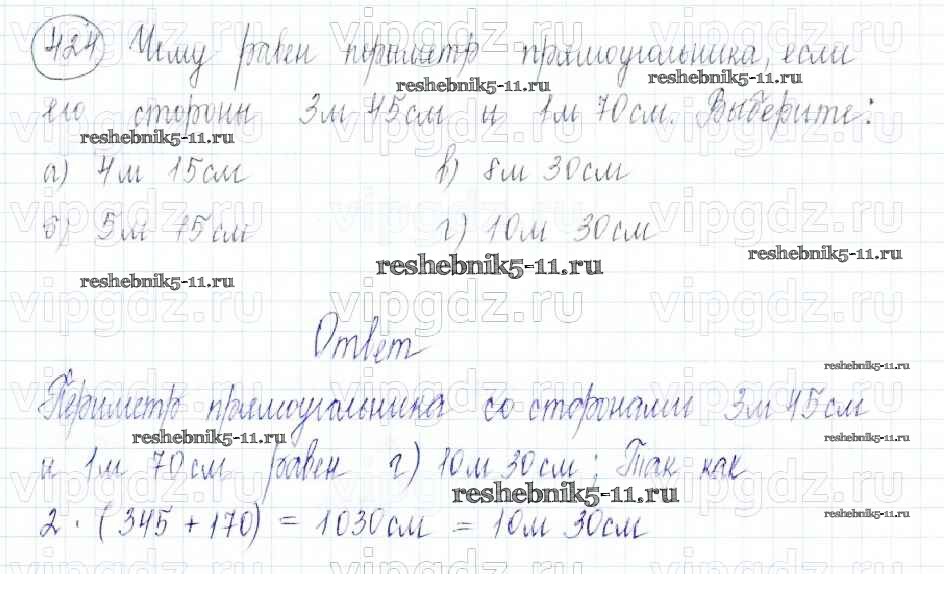 424 Чему равен периметр прямоугольника, если
его стороны 3м 45см и 1м 70см. Выберите:
а) 4м 15см в) 8м 30см
б) 5м 75см г) 10м 30см
Ответ
Периметр прямоугольника со сторонами 3м 45см
и 1м 70см равен г) 10м 30см; Так как
2 · (345 + 170) = 1030см = 10м 30см
vipgdz.ru
reshebnik5-11.ru